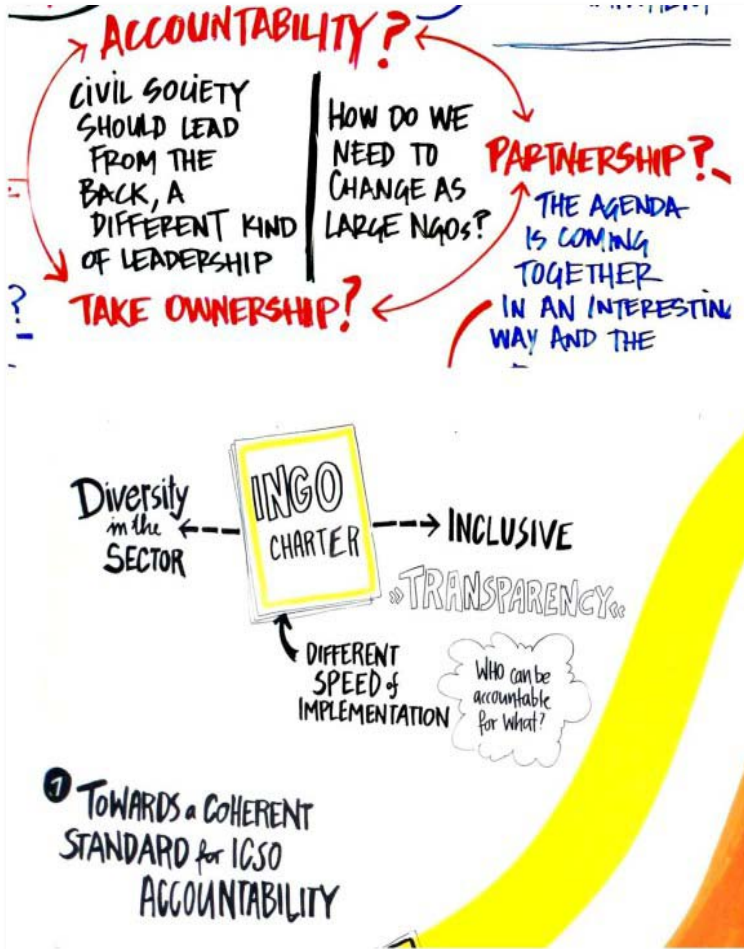 ACCOUNTABILITY?
CIVIL SOCIETY
SHOULD LEAD
FROM THE
BACK, A
DIFFERENT KIND
OF LEADERSHIP
HOW DO WE
NEED TO
CHANGE AS
LARGE NGOs?
PARTNERSHIP?
THE AGENDA
IS COMING
TOGETHER
IN AN INTERESTING
WAY AND THE
?
TAKE OWNERSHIP?
INGO
CHARTER
Diversity
in the
SECTOR
INCLUSIVE
»TRANSPARENCY«
DIFFERENT
SPEED of
IMPLEMENTATION
WHO can be
accountable
for what?
1 TOWARDS a COHERENT
STANDARD for ICSO
ACCOUNTABILITY